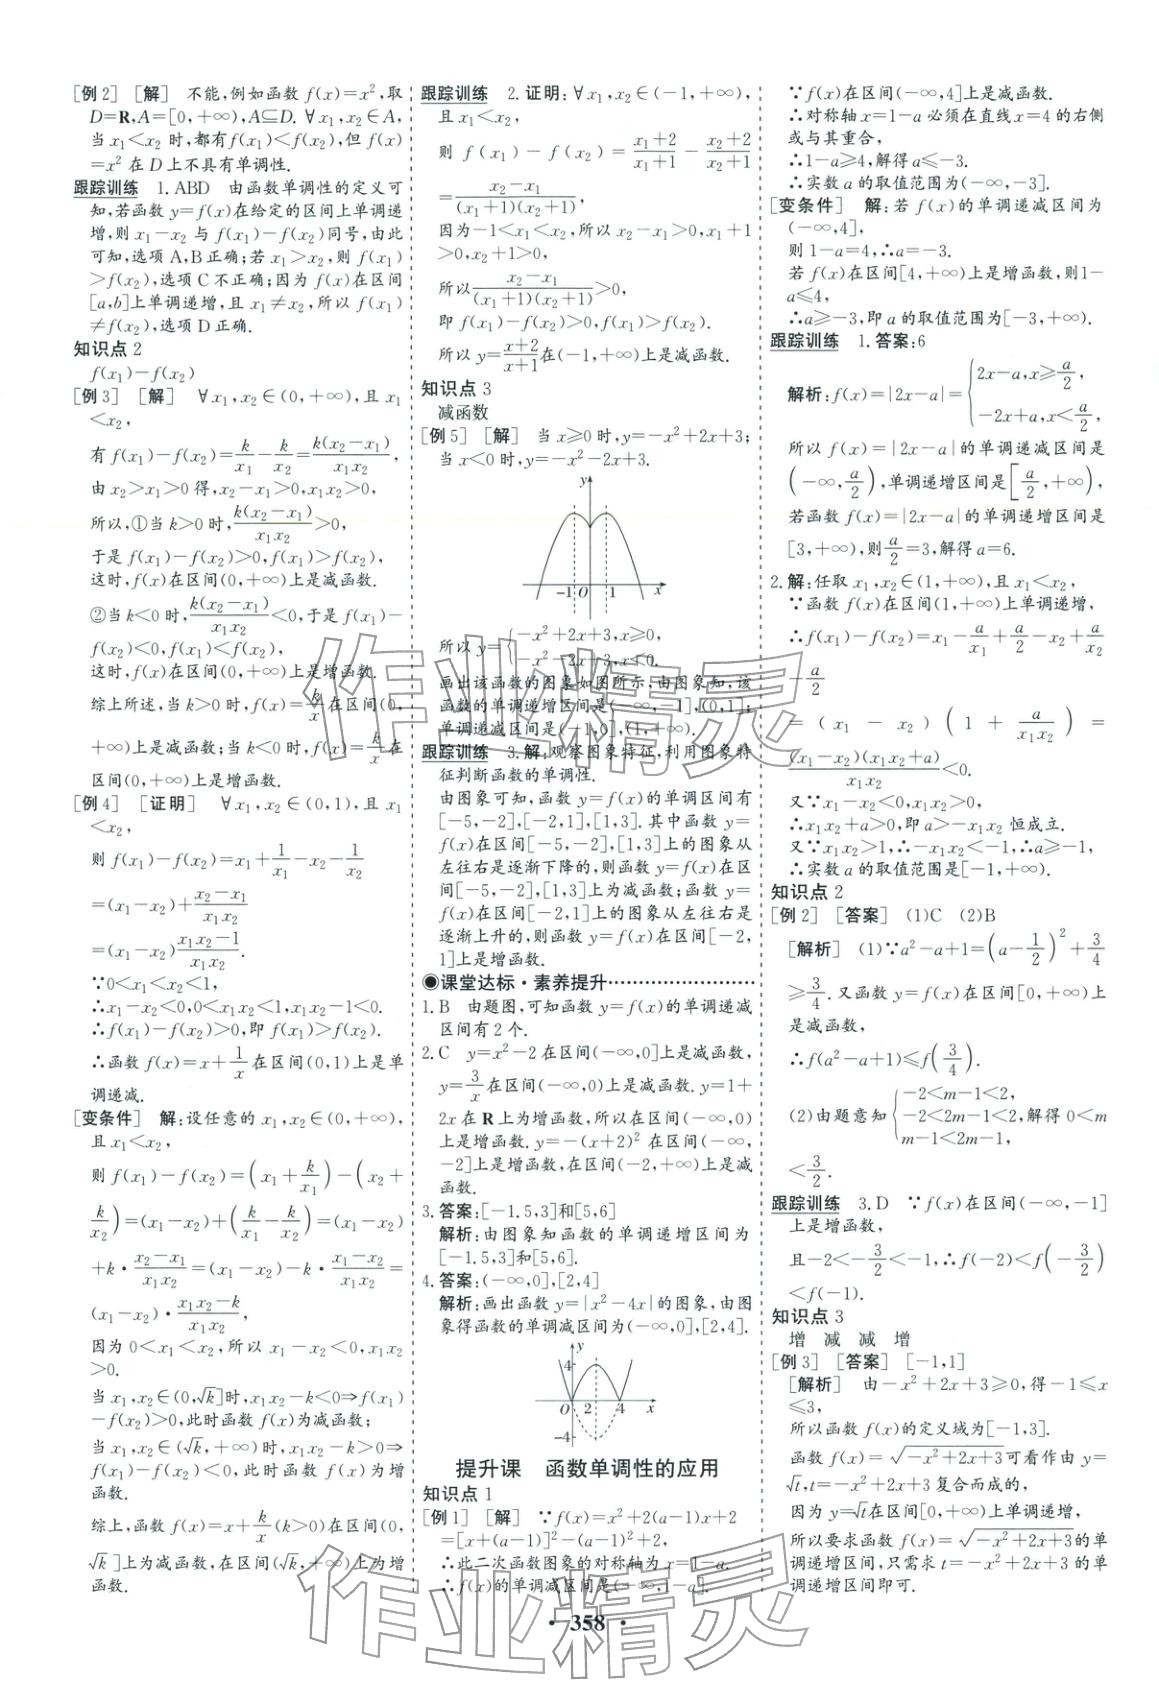 [例2] [解] 不能,例如函数 f(x)=x²,取
D=R,A=[0,+∞),A⊆D. ∀x₁,x₂∈A,
当 x₁<x₂ 时,都有f(x₁)<f(x₂),但 f(x)
=x² 在 D 上不具有单调性.
跟踪训练 1.ABD 由函数单调性的定义可
知,若函数 y=f(x)在给定的区间上单调递
增,则 x₁-x₂ 与 f(x₁)-f(x₂)同号,由此
可知,选项 A,B正确;若 x₁>x₂,则 f(x₁)
>f(x₂),选项 C不正确;因为 f(x)在区间
[a,b]上单调递增,且 x₁≠x₂,所以 f(x₁)
≠f(x₂),选项 D正确.
知识点 2
f(x₁)-f(x₂)
[例3] [解] ∀x₁,x₂∈(0,+∞),且 x₁
<x₂,
有 f(x₁)-f(x₂)=k/x₁-k/x₂=k(x₂-x₁)/(x₁x₂),
由 x₂>x₁>0 得,x₂-x₁>0,x₁x₂>0,
所以,①当 k>0 时,k(x₂-x₁)/(x₁x₂)>0,
于是 f(x₁)-f(x₂)>0,f(x₁)>f(x₂),
这时,f(x)在区间(0,+∞)上是减函数.
②当 k<0 时,k(x₂-x₁)/(x₁x₂)<0,于是 f(x₁)-
f(x₂)<0,f(x₁)<f(x₂),
这时,f(x)在区间(0,+∞)上是增函数.
综上所述,当 k>0 时,f(x)=k/x 在区间(0,
+∞)上是减函数;当 k<0 时,f(x)=k/x 在
区间(0,+∞)上是增函数.
[例4] [证明] ∀x₁,x₂∈(0,1),且 x₁
<x₂,
则 f(x₁)-f(x₂)=x₁+1/x₁-x₂-1/x₂
=(x₁-x₂)+(x₂-x₁)/(x₁x₂)
=(x₁-x₂)(x₁x₂-1)/(x₁x₂).
∵0<x₁<x₂<1,
∴x₁-x₂<0,0<x₁x₂<1,x₁x₂-1<0
∴f(x₁)-f(x₂)>0,即 f(x₁)>f(x₂).
∴函数 f(x)=x+1/x 在区间(0,1)上是单
调递减.
[变条件] 解:设任意的 x₁,x₂∈(0,+∞),
且 x₁<x₂,
则 f(x₁)-f(x₂)=(x₁+k/x₁)-(x₂+
k/x₂)=(x₁-x₂)+(k/x₁-k/x₂)=(x₁-x₂)
+k·(x₂-x₁)/(x₁x₂)=(x₁-x₂)-k·(x₁-x₂)/(x₁x₂)=
(x₁-x₂)·(x₁x₂-k)/(x₁x₂),
因为 0<x₁<x₂,所以 x₁-x₂<0,x₁x₂
>0.
当 x₁,x₂∈(0,√k]时,x₁x₂-k<0⇒f(x₁)
-f(x₂)>0,此时函数 f(x)为减函数;
当 x₁,x₂∈(√k,+∞)时,x₁x₂-k>0⇒
f(x₁)-f(x₂)<0,此时函数 f(x)为增
函数.
综上,函数 f(x)=x+k/x(k>0)在区间(0,
√k]上为减函数,在区间(√k,+∞)上为增
函数.
跟踪训练 2.证明:∀x₁,x₂∈(-1,+∞),
且 x₁<x₂,
则 f(x₁)-f(x₂)=(x₁+2)/(x₁+1)-(x₂+2)/(x₂+1)
=(x₂-x₁)/((x₁+1)(x₂+1)),
因为-1<x₁<x₂,所以 x₂-x₁>0,x₁+1
>0,x₂+1>0,
所以(x₂-x₁)/((x₁+1)(x₂+1))>0,
即 f(x₁)-f(x₂)>0,f(x₁)>f(x₂).
所以 y=(x+2)/(x+1)在(-1,+∞)上是减函数.
知识点 3
减函数
[例5] [解] 当 x≥0 时,y=-x²+2x+3;
当 x<0 时,y=-x²-2x+3.
y
-1 O 1 x
所以 y={-x²+2x+3,x≥0,
-x²-2x+3,x<0.
画出该函数的图象如图所示,由图象知,该
函数的单调递增区间是(-∞,-1],(0,1];
单调递减区间是(-1,0],(1,+∞).
跟踪训练 3.解:观察图象特征,利用图象特
征判断函数的单调性.
由图象可知,函数 y=f(x)的单调区间有
[-5,-2],[-2,1],[1,3].其中函数 y=
f(x)在区间[-5,-2],[1,3]上的图象从
左往右是逐渐下降的,则函数 y=f(x)在区
间[-5,-2],[1,3]上为减函数;函数 y=
f(x)在区间[-2,1]上的图象从左往右是
逐渐上升的,则函数 y=f(x)在区间[-2,
1]上是增函数.
◉课堂达标·素养提升
1.B 由题图,可知函数 y=f(x)的单调递减
区间有 2 个.
2.C y=x²-2在区间(-∞,0]上是减函数,
y=3/x 在区间(-∞,0)上是减函数. y=1+
2x 在 R 上为增函数,所以在区间(-∞,0)
上是增函数. y=-(x+2)² 在区间(-∞,
-2]上是增函数,在区间(-2,+∞)上是减
函数.
3.答案:[-1.5,3]和[5,6]
解析:由图象知函数的单调递增区间为
[-1.5,3]和[5,6].
4.答案:(-∞,0],[2,4]
解析:画出函数 y=|x²-4x|的图象,由图
象得函数的单调减区间为(-∞,0],[2,4].
y
4
O 2 4 x
-4
提升课 函数单调性的应用
知识点 1
[例1] [解] ∵f(x)=x²+2(a-1)x+2
=[x+(a-1)]²-(a-1)²+2,
∴此二次函数图象的对称轴为 x=1-a.
∴f(x)的单调减区间是(-∞,1-a].
∵f(x)在区间(-∞,4]上是减函数.
∴对称轴 x=1-a 必须在直线x=4 的右侧
或与其重合,
∴1-a≥4,解得 a≤-3.
∴实数 a 的取值范围为(-∞,-3].
[变条件] 解:若 f(x)的单调递减区间为
(-∞,4],
则 1-a=4,∴a=-3.
若 f(x)在区间[4,+∞)上是增函数,则1-
a≤4,
∴a≥-3,即 a 的取值范围为[-3,+∞).
跟踪训练 1.答案:6
解析:f(x)=|2x-a|={2x-a,x≥a/2,
-2x+a,x<a/2,
所以 f(x)=|2x-a|的单调递减区间是
(-∞,a/2),单调递增区间是[a/2,+∞),
若函数 f(x)=|2x-a|的单调递增区间是
[3,+∞),则a/2=3,解得 a=6.
2.解:任取 x₁,x₂∈(1,+∞),且 x₁<x₂,
∵函数 f(x)在区间(1,+∞)上单调递增,
∴f(x₁)-f(x₂)=x₁-a/x₁+a/2-x₂+a/x₂
-a/2
=(x₁-x₂)(1+a/(x₁x₂))=
(x₁-x₂)(x₁x₂+a)/(x₁x₂)<0.
又∵x₁-x₂<0,x₁x₂>0,
∴x₁x₂+a>0,即 a>-x₁x₂ 恒成立.
又∵x₁x₂>1,∴-x₁x₂<-1,∴a≥-1,
∴实数 a 的取值范围是[-1,+∞).
知识点 2
[例2] [答案] (1)C (2)B
[解析] (1)∵a²-a+1=(a-1/2)²+3/4
≥3/4.又函数 f(x)在区间[0,+∞)上
是减函数,
∴f(a²-a+1)≤f(3/4).
(2)由题意知{-2<m-1<2,
-2<2m-1<2,解得 0<m
m-1<2m-1,
<3/2.
跟踪训练 3.D ∵f(x)在区间(-∞,-1]
上是增函数,
且-2<-3/2<-1,∴f(-2)<f(-3/2)
<f(-1).
知识点 3
增 减 减 增
[例3] [答案] [-1,1]
[解析] 由-x²+2x+3≥0,得-1≤x
≤3,
所以函数 f(x)的定义域为[-1,3].
函数 f(x)=√(-x²+2x+3)可看作由 y=
√t,t=-x²+2x+3 复合而成的,
因为 y=√t在区间[0,+∞)上单调递增,
所以要求函数 f(x)=√(-x²+2x+3)的单
调递增区间,只需求 t=-x²+2x+3 的单
调递增区间即可.
·358·
作业精灵
作业精灵